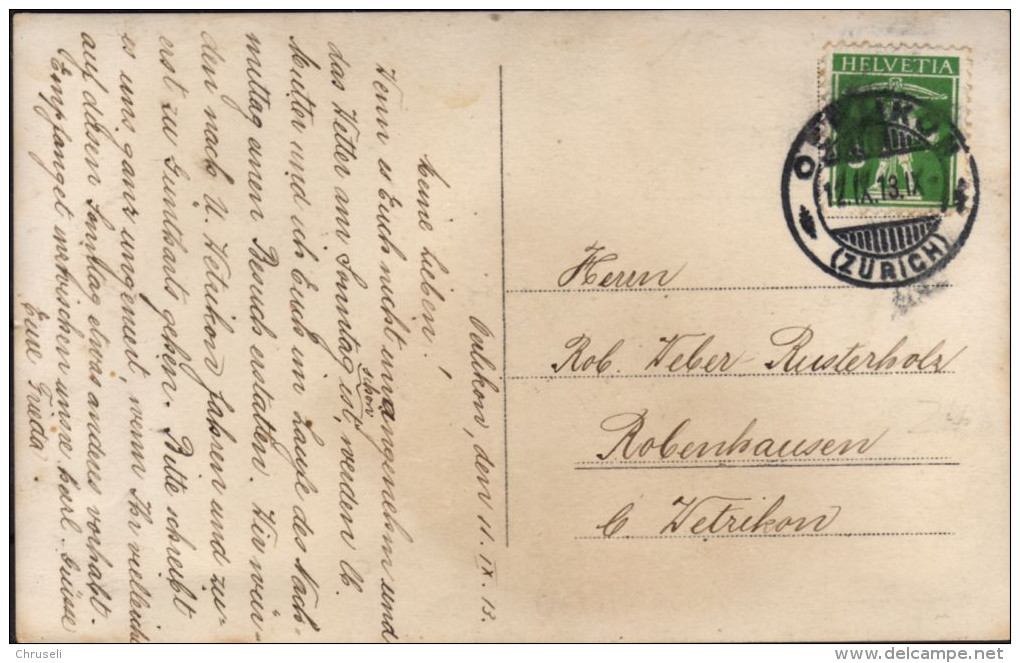 Oerlikon, den 11. IX. 13.
Meine Lieben!
Wenn es Euch nicht unangenehm und
das Wetter am Sonntag schön ist, werden lb.
Mutter und ich Euch im Laufe des Nach-
mittag einen Besuch erstatten. Wir wür-
den nach U. Wetzikon fahren und zu-
erst zu Gunthards gehen. Bitte schreibt
es uns ganz ungeniert, wenn Ihr vielleicht
auf diesen Sonntag etwas anderes vorhabt.
Empfanget inzwischen unsre herzl. Grüsse
Eure Frieda
HELVETIA
OERLIKON
12.IX.13.IX
(ZÜRICH)
Herrn
Rob. Weber-Rusterholz
Robenhausen
b. Wetzikon
Chruseli
delcampe.net